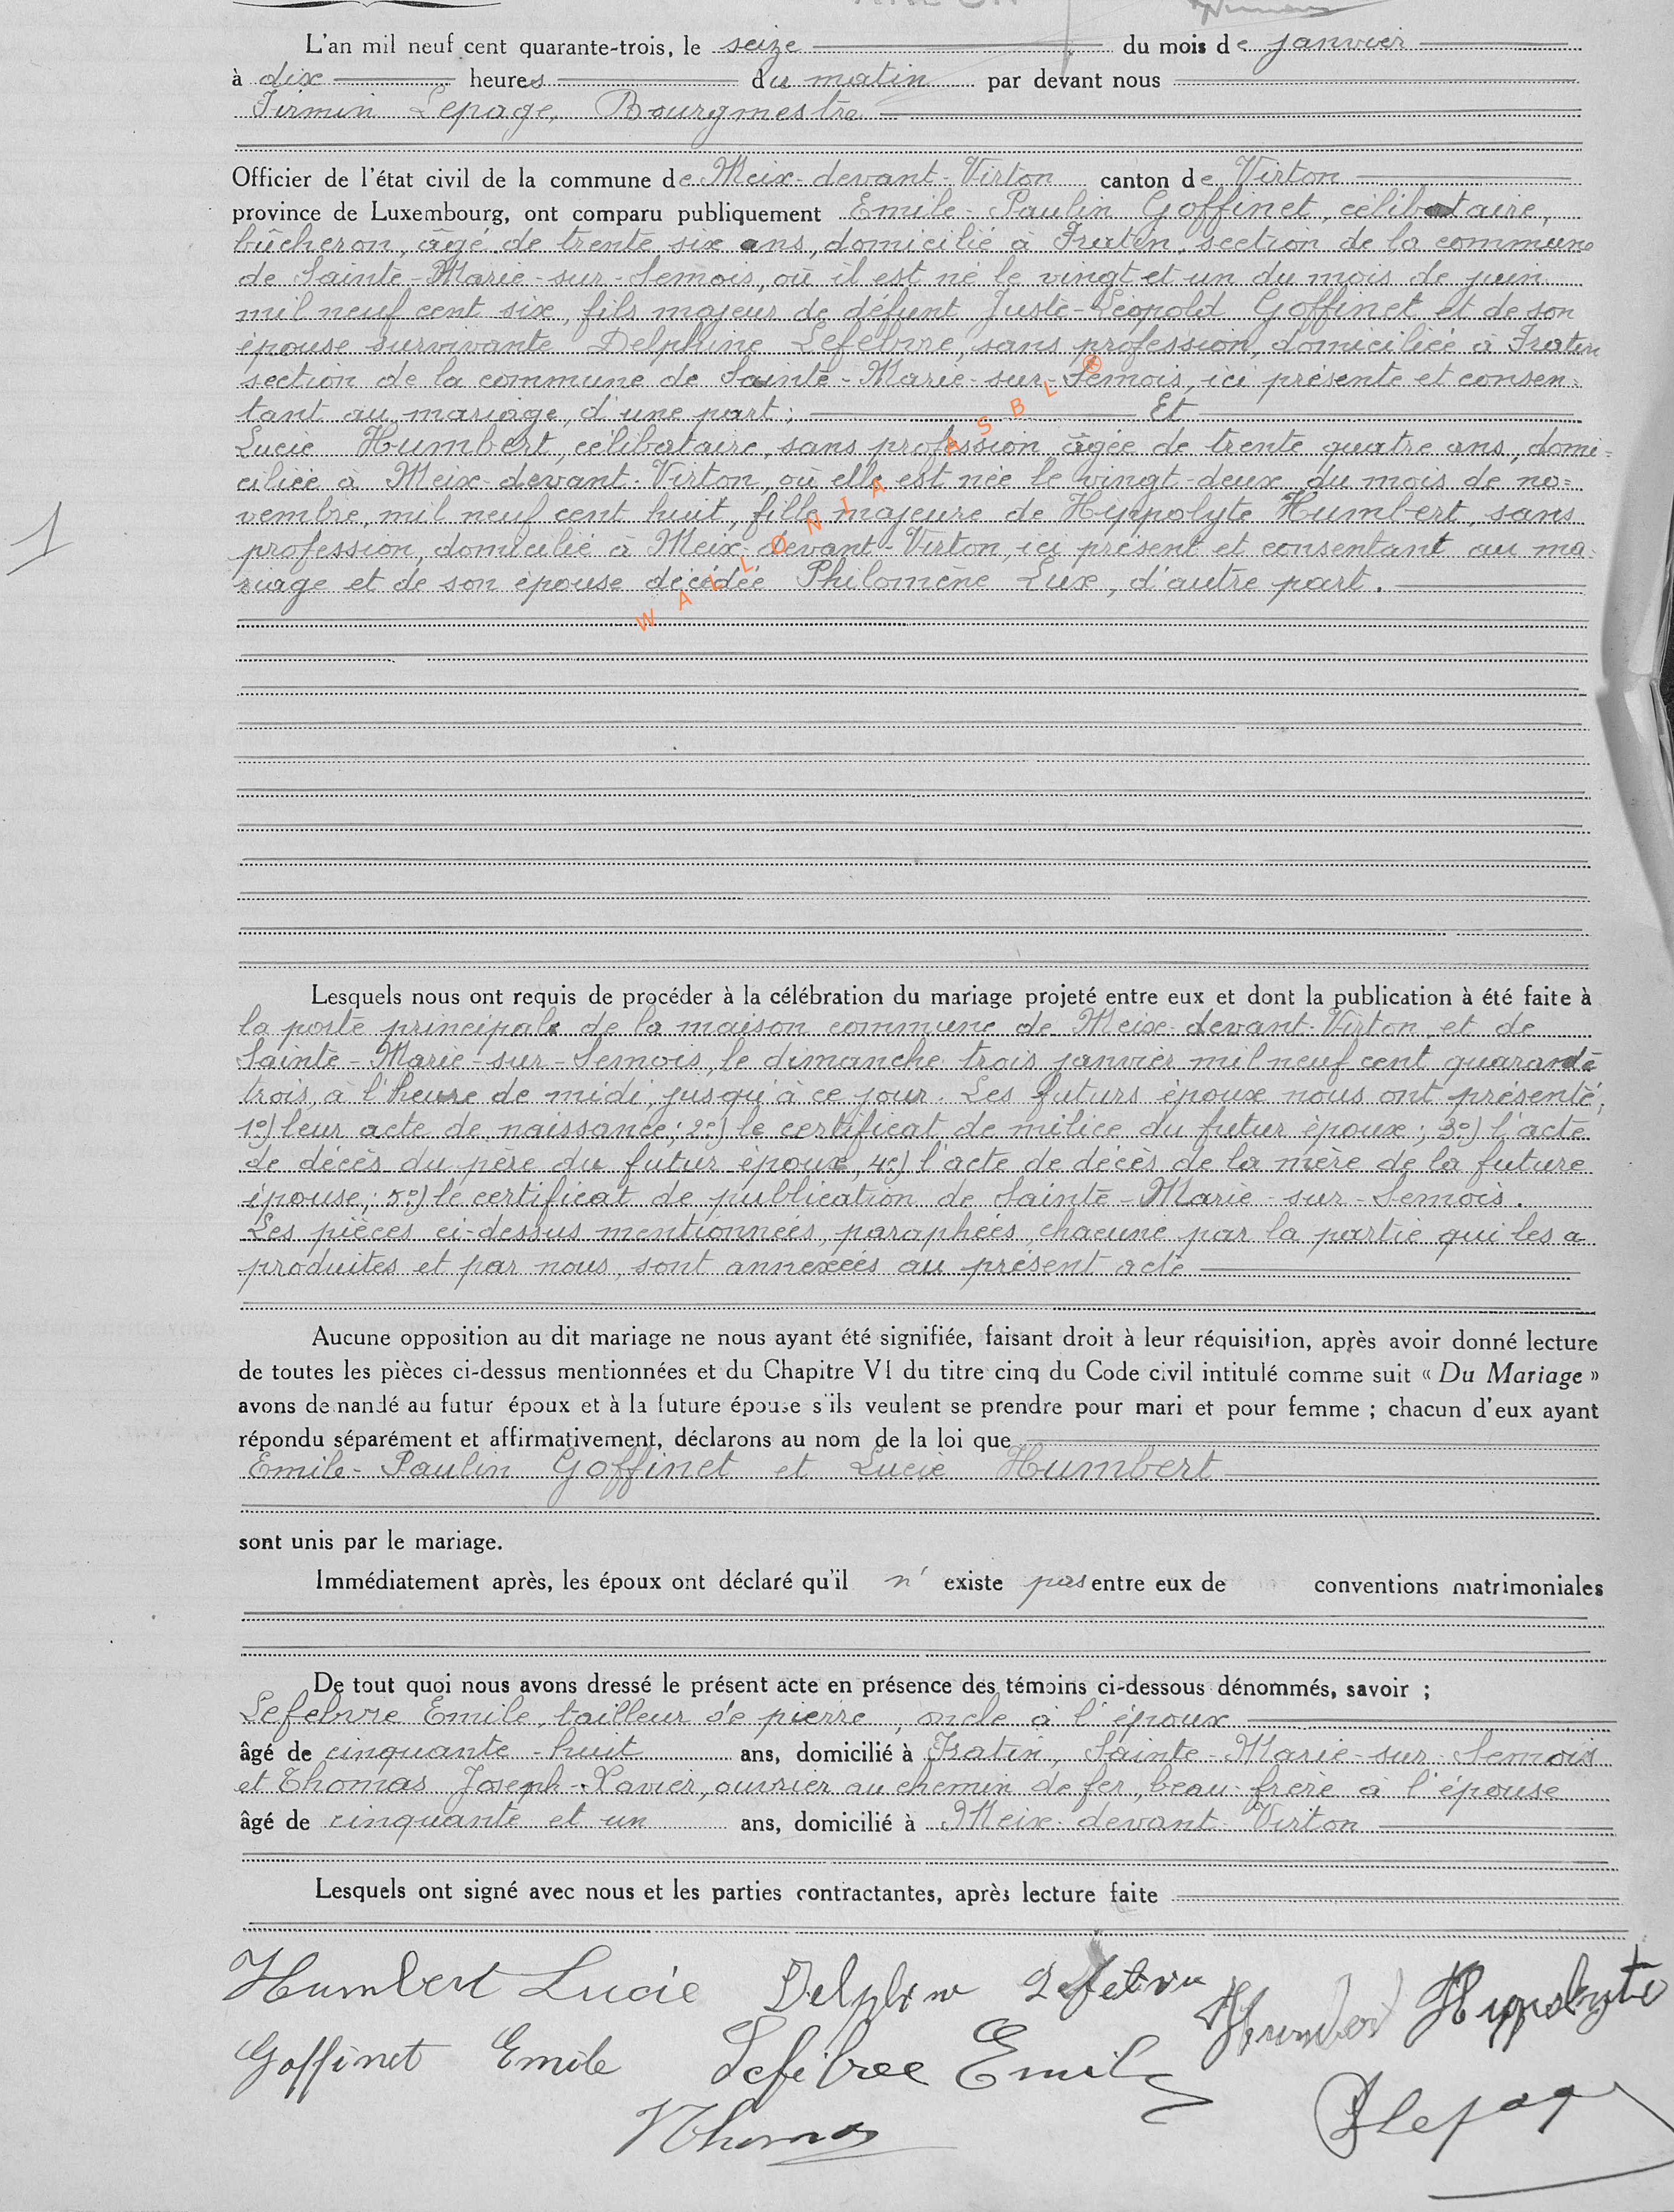 L'an mil neuf cent quarante-trois, le seize du mois de janvier
à dix heures du matin par devant nous
Firmin Lepage, Bourgmestre
Officier de l'état civil de la commune de Meix-devant-Virton canton de Virton
province de Luxembourg, ont comparu publiquement Emile-Paulin Goffinet, célibataire,
bûcheron, âgé de trente six ans, domicilié à Fratin, section de la commune
de Sainte-Marie-sur-Semois, où il est né le vingt et un du mois de juin
mil neuf cent six, fils majeur de défunt Juste-Léopold Goffinet et de son
épouse survivante Delphine Lefebvre, sans profession, domiciliée à Fratin
section de la commune de Sainte-Marie-sur-Semois, ici présente et consen-
tant au mariage, d'une part; Et
Lucie Humbert, célibataire, sans profession, âgée de trente quatre ans, domi-
ciliée à Meix-devant-Virton, où elle est née le vingt-deux du mois de no-
vembre, mil neuf cent huit, fille majeure de Hippolyte Humbert, sans
1
profession, domicilié à Meix-devant-Virton, ici présent et consentant au ma-
riage et de son épouse décédée Philomène Lux, d'autre part.
WALLONIA ASBL ®
Lesquels nous ont requis de procéder à la célébration du mariage projeté entre eux et dont la publication à été faite à
la porte principale de la maison commune de Meix-devant-Virton et de
Sainte-Marie-sur-Semois, le dimanche trois janvier mil neuf cent quarante
trois, à l'heure de midi, jusqu'à ce jour. Les futurs époux nous ont présenté,
1°) leur acte de naissance; 2°) le certificat de milice du futur époux; 3°) l'acte
de décès du père du futur époux, 4°) l'acte de décès de la mère de la future
épouse; 5°) le certificat de publication de Sainte-Marie-sur-Semois.
Les pièces ci-dessus mentionnées, paraphées, chacune par la partie qui les a
produites et par nous, sont annexées au présent acte
Aucune opposition au dit mariage ne nous ayant été signifiée, faisant droit à leur réquisition, après avoir donné lecture
de toutes les pièces ci-dessus mentionnées et du Chapitre VI du titre cinq du Code civil intitulé comme suit « Du Mariage »
avons demandé au futur époux et à la future épouse s'ils veulent se prendre pour mari et pour femme ; chacun d'eux ayant
répondu séparément et affirmativement, déclarons au nom de la loi que
Emile-Paulin Goffinet et Lucie Humbert
sont unis par le mariage.
Immédiatement après, les époux ont déclaré qu'il n' existe pas entre eux de conventions matrimoniales
De tout quoi nous avons dressé le présent acte en présence des témoins ci-dessous dénommés, savoir ;
Lefebvre Emile, tailleur de pierre, oncle à l'époux
âgé de cinquante-huit ans, domicilié à Fratin, Sainte-Marie-sur-Semois
et Thomas Joseph-Xavier, ouvrier au chemin de fer, beau-frère à l'épouse
âgé de cinquante et un ans, domicilié à Meix-devant-Virton
Lesquels ont signé avec nous et les parties contractantes, après lecture faite
Humbert Lucie Delphine Lefebvre Humbert Hippolyte
Goffinet Emile Lefebvre Emile
Thomas Lepage